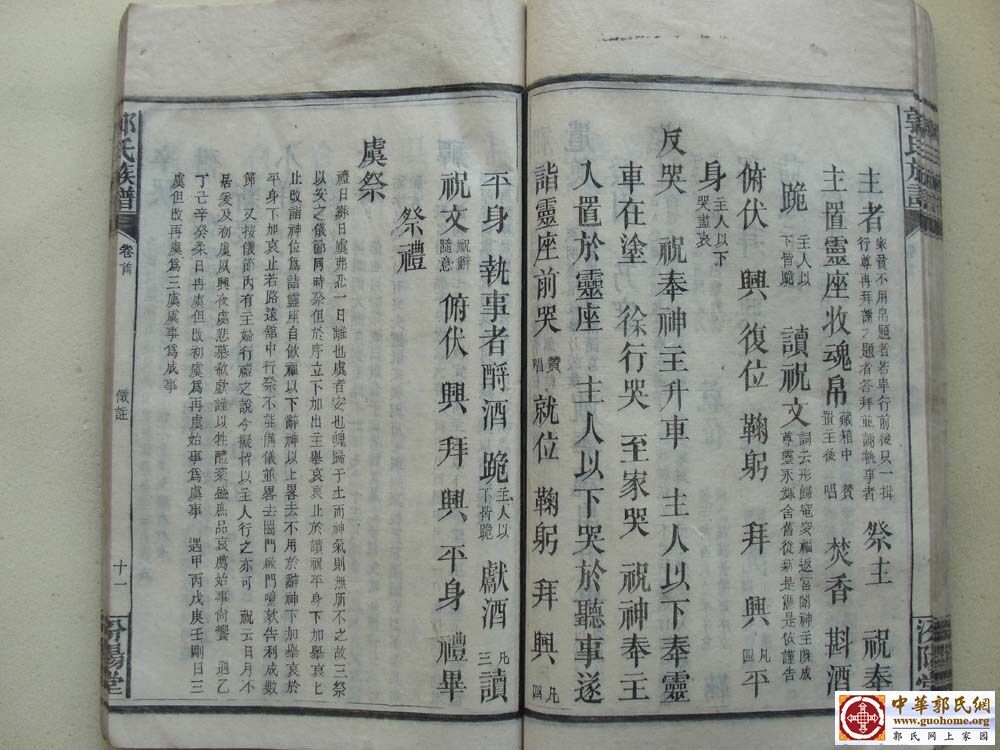 主者 家貧不用帛題者若卑行前後只一揖 行尊再拜謝之題者答拜並謝執事者 祭主 祝奉
主置靈座收魂帛 藏箱中 置主後 贊 唱 焚香 斟酒
跪 主人以 下皆跪 讀祝文 詞云形歸窀穸福返宮閽神主既成 尊靈永輝舍舊從新是憑是依謹告
俯伏 興 復位 鞠躬 拜 興 凡 四 平
身 主人以下 哭盡哀
反哭 祝奉神主升車 主人以下奉靈
車在塗 徐行哭 至家哭 祝神奉主
入置於靈座 主人以下哭於聽事遂
詣靈座前哭 贊 唱 就位 鞠躬 拜 興 凡 四
平身 執事者酹酒 跪 主人以 下皆跪 獻酒 凡 三 讀
祝文 祝辭 隨意 俯伏 興 拜 興 平身 禮畢
祭禮
虞祭
禮日葬日虞弗忍一日離也虞者安也魄歸于土而神氣則無所不之故三祭
以安之儀節同時祭但於序立下加出主舉哀哀止於讀祝平身下加舉哀七
止改詣神位為詣靈座自飲福以下辭神以上畧去不用於辭神下加舉哀於
平身下加哀止若路遠舘中行祭不能備儀並畧去闔門啟門噫歆告利成數
節 又按儀節內有主婦行禮之說今擬哲以主人行之亦可 祝云日月不
居奄及初虞夙興夜處悲慕欷歔謹以牲醴粢盛庶品哀薦始事尚饗 遇乙
丁己辛癸柔日再虞但改初虞為再虞始事為虞事 遇甲丙戊庚壬剛日三
虞但改再虞為三虞虞事為成事
郭氏族譜
卷首
儀註
十一
汾陽堂
郭氏族譜
汾陽堂
中華郭氏網
www.guohome.org
郭氏網上家園